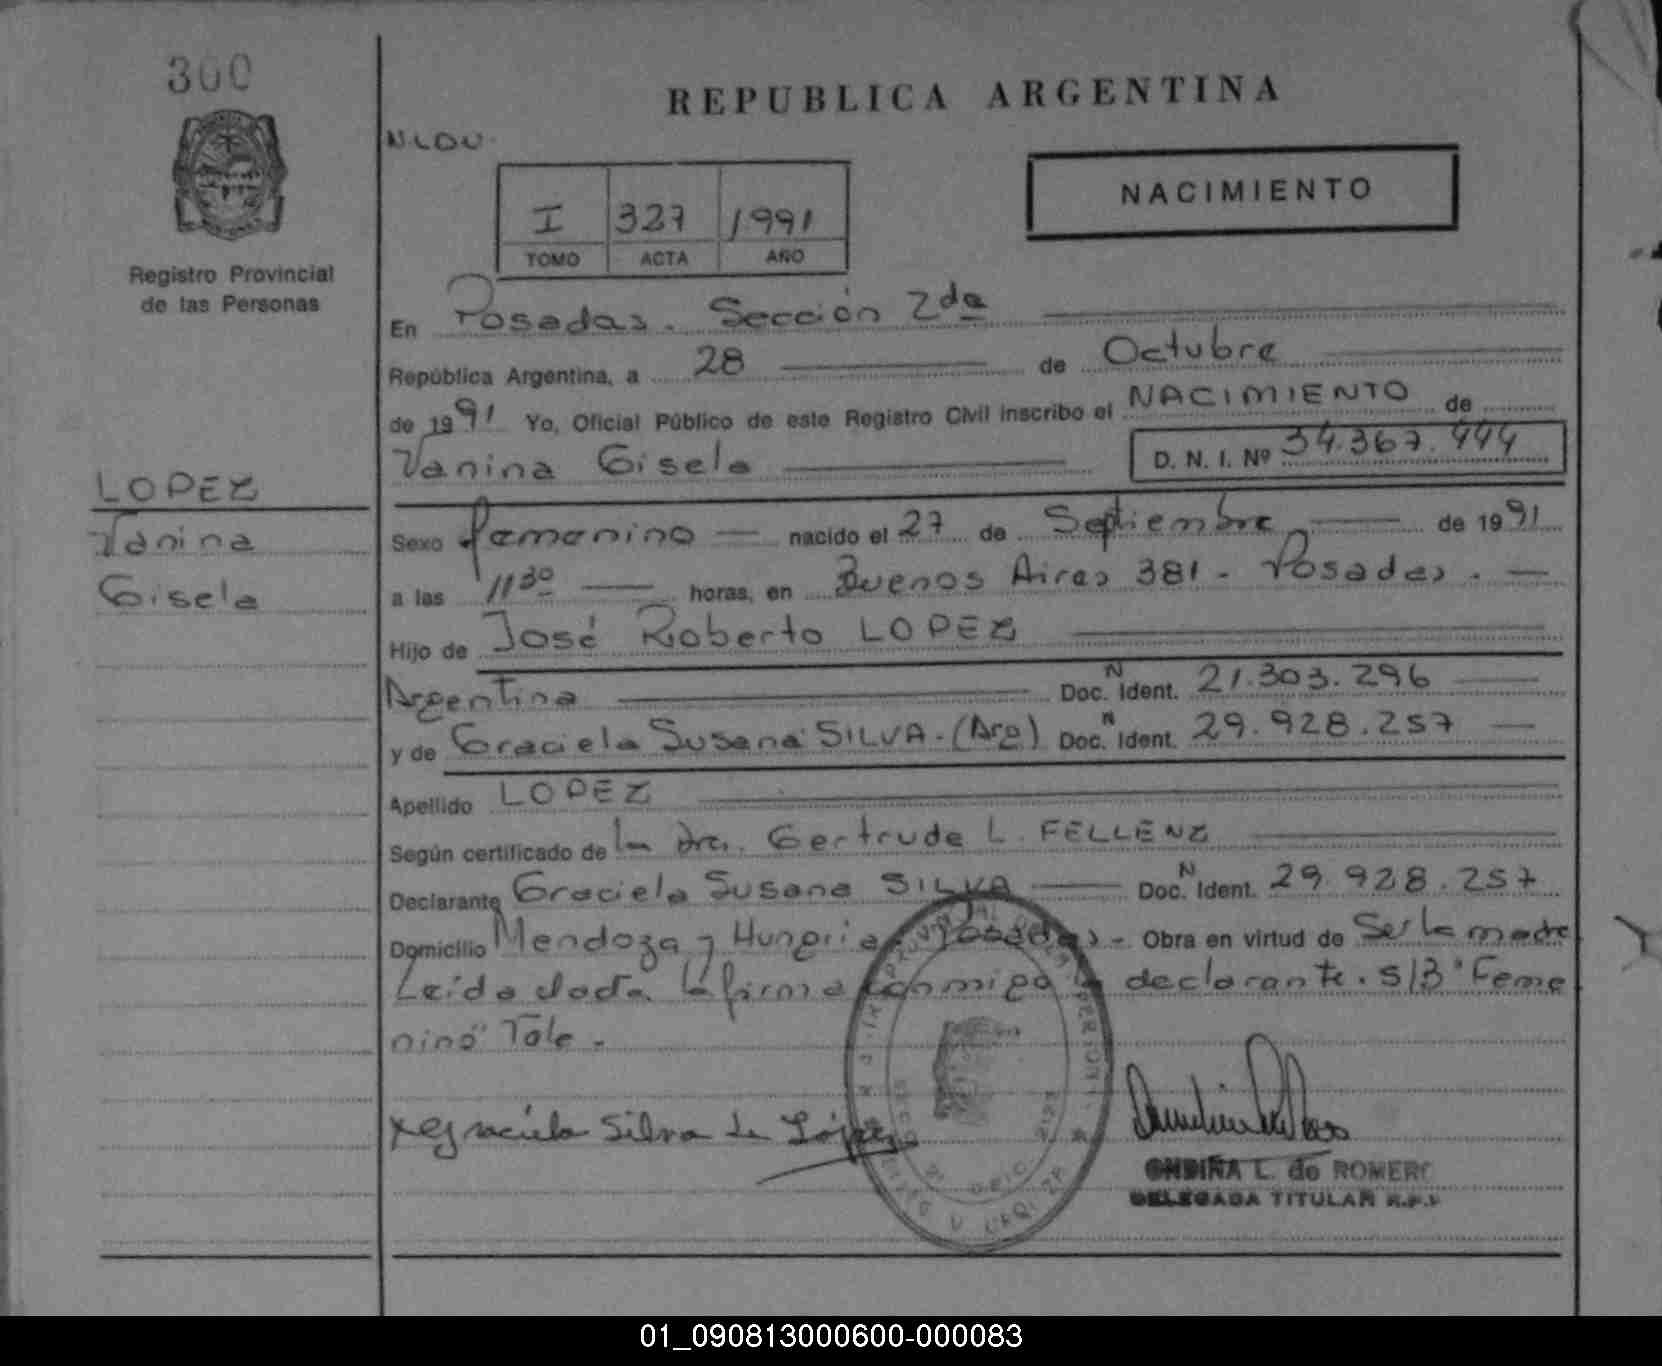 300
REPUBLICA ARGENTINA
NACIMIENTO
I 327 1991
TOMO ACTA AÑO
Registro Provincial
de las Personas
En Posadas. Sección 2da
República Argentina, a 28 de Octubre
de 1991 Yo, Oficial Público de este Registro Civil inscribo el NACIMIENTO de
Vanina Gisela D. N. I. Nº 34.367.444
LOPEZ
Vanina
Gisela
Sexo femenino nacido el 27 de Septiembre de 1991
a las 1130 horas, en Buenos Aires 381 - Posadas. -
Hijo de José Roberto LOPEZ
Argentina N Doc. Ident. 21.303.296
y de Graciela Susana SILVA. (Arg) N Doc. Ident. 29.928.257
Apellido LOPEZ
Según certificado de la Dra. Gertrude L. FELLENZ
Declarante Graciela Susana SILVA N Doc. Ident. 29.928.257
Domicilio Mendoza y Hungria Posadas - Obra en virtud de Ser la madre
Leída la firma conmigo la declarante. S/B "Feme
nino" Vale -
Graciela Silva de López
L. de ROMERO
DELEGADA TITULAR R.P.P
01_090813000600-000083